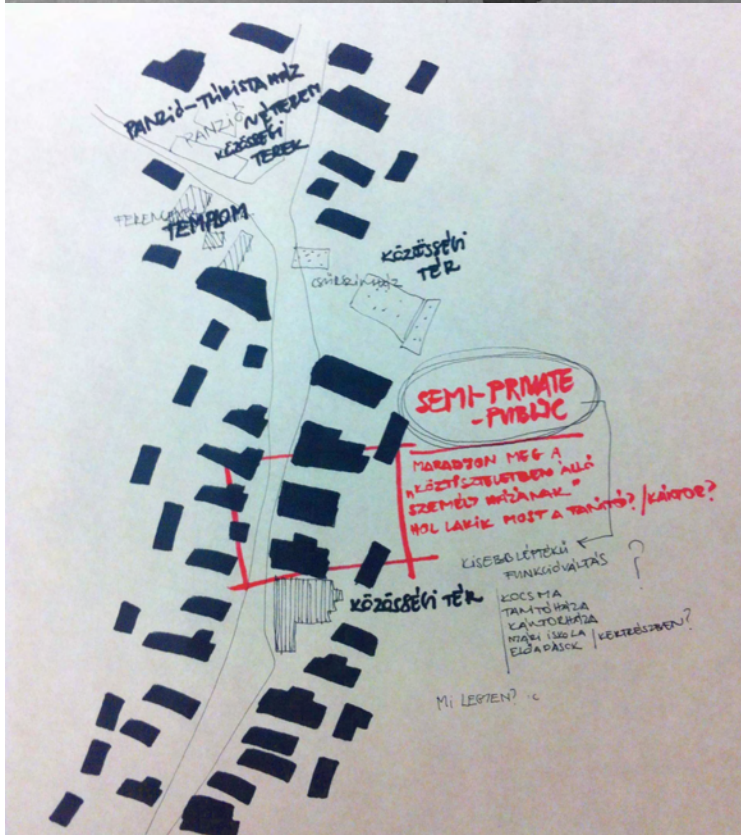 PANZIÓ-TÚRISTAHÁZ
PANZIÓ
MŰTEREM
KÖZÖSSÉGI
TEREK
TEMPLOM
KÖZÖSSÉGI
TÉR
CSŰRSZÍNHÁZ
SEMI-PRIVATE
-PUBLIC
MARADJON MEG A
„KÖZTISZTELETBEN ÁLLÓ
SZEMÉLY HÁZÁNAK"
HOL LAKIK MOST A TANÍTÓ? /KÁNTOR?
KISEBB LÉPTÉKŰ
FUNKCIÓVÁLTÁS ?
KÖZÖSSÉGI TÉR
KOCSMA
TANÍTÓHÁZA
KÁNTORHÁZA
NYÁRI ISKOLA
ELŐADÁSOK /KERTRÉSZBEN?
MI LEGYEN? :c